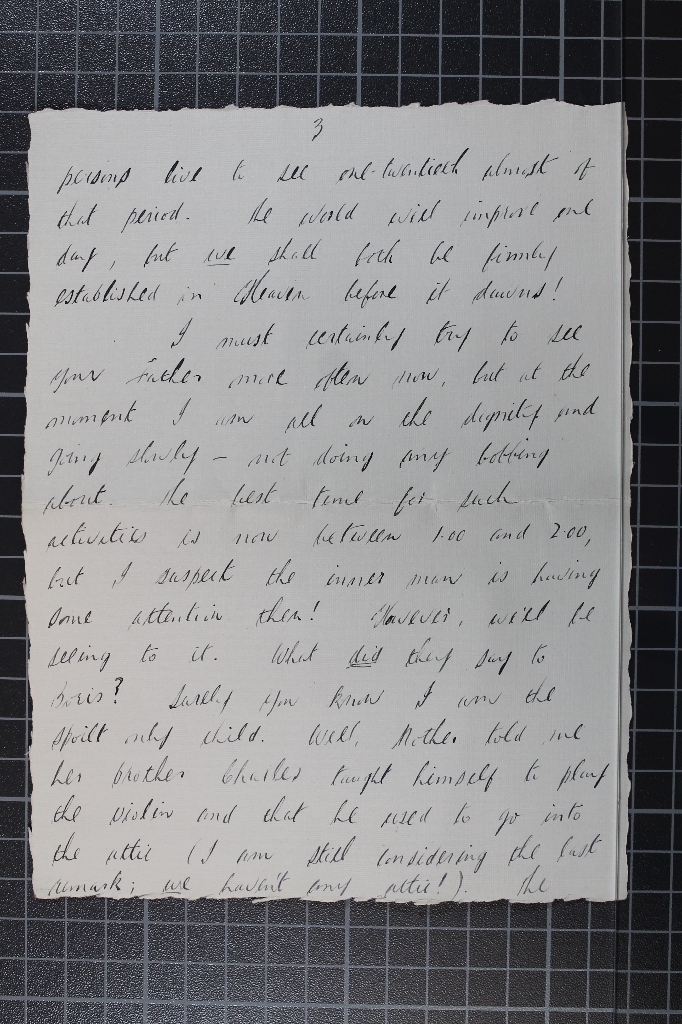 3
persons live to see one-twentieth almost of
that period. The world will improve one
day, but we shall both be firmly
established in Heaven before it dawns!
I must certainly try to see
your Father more often now, but at the
moment I am all on the dignity and
going slowly - not doing any bobbing
about. The best time for such
activities is now between 1.00 and 2.00,
but I suspect the inner man is having
some attention then! However, we'll be
seeing to it. What did they say to
Boris? Surely you know I am the
spoilt only child. Well, Mother told me
her brother Charles taught himself to play
the violin and that he used to go into
the attic (I am still considering the last
remark; we haven't any attic!). The